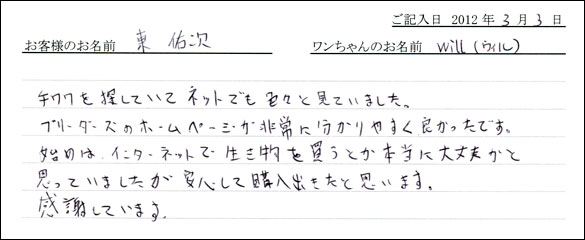 ご記入日 2012 年 3 月 3 日
お客様のお名前 東 佑次 ワンちゃんのお名前 Will (ウィル)
チワワを探していて ネットでも色々と見ていました。
ブリーダーズのホームページが非常に分かりやすく良かったです。
始めは、インターネットで生き物を買うとか本当に大丈夫かと
思っていましたが安心して購入出きたと思います。
感謝しています。